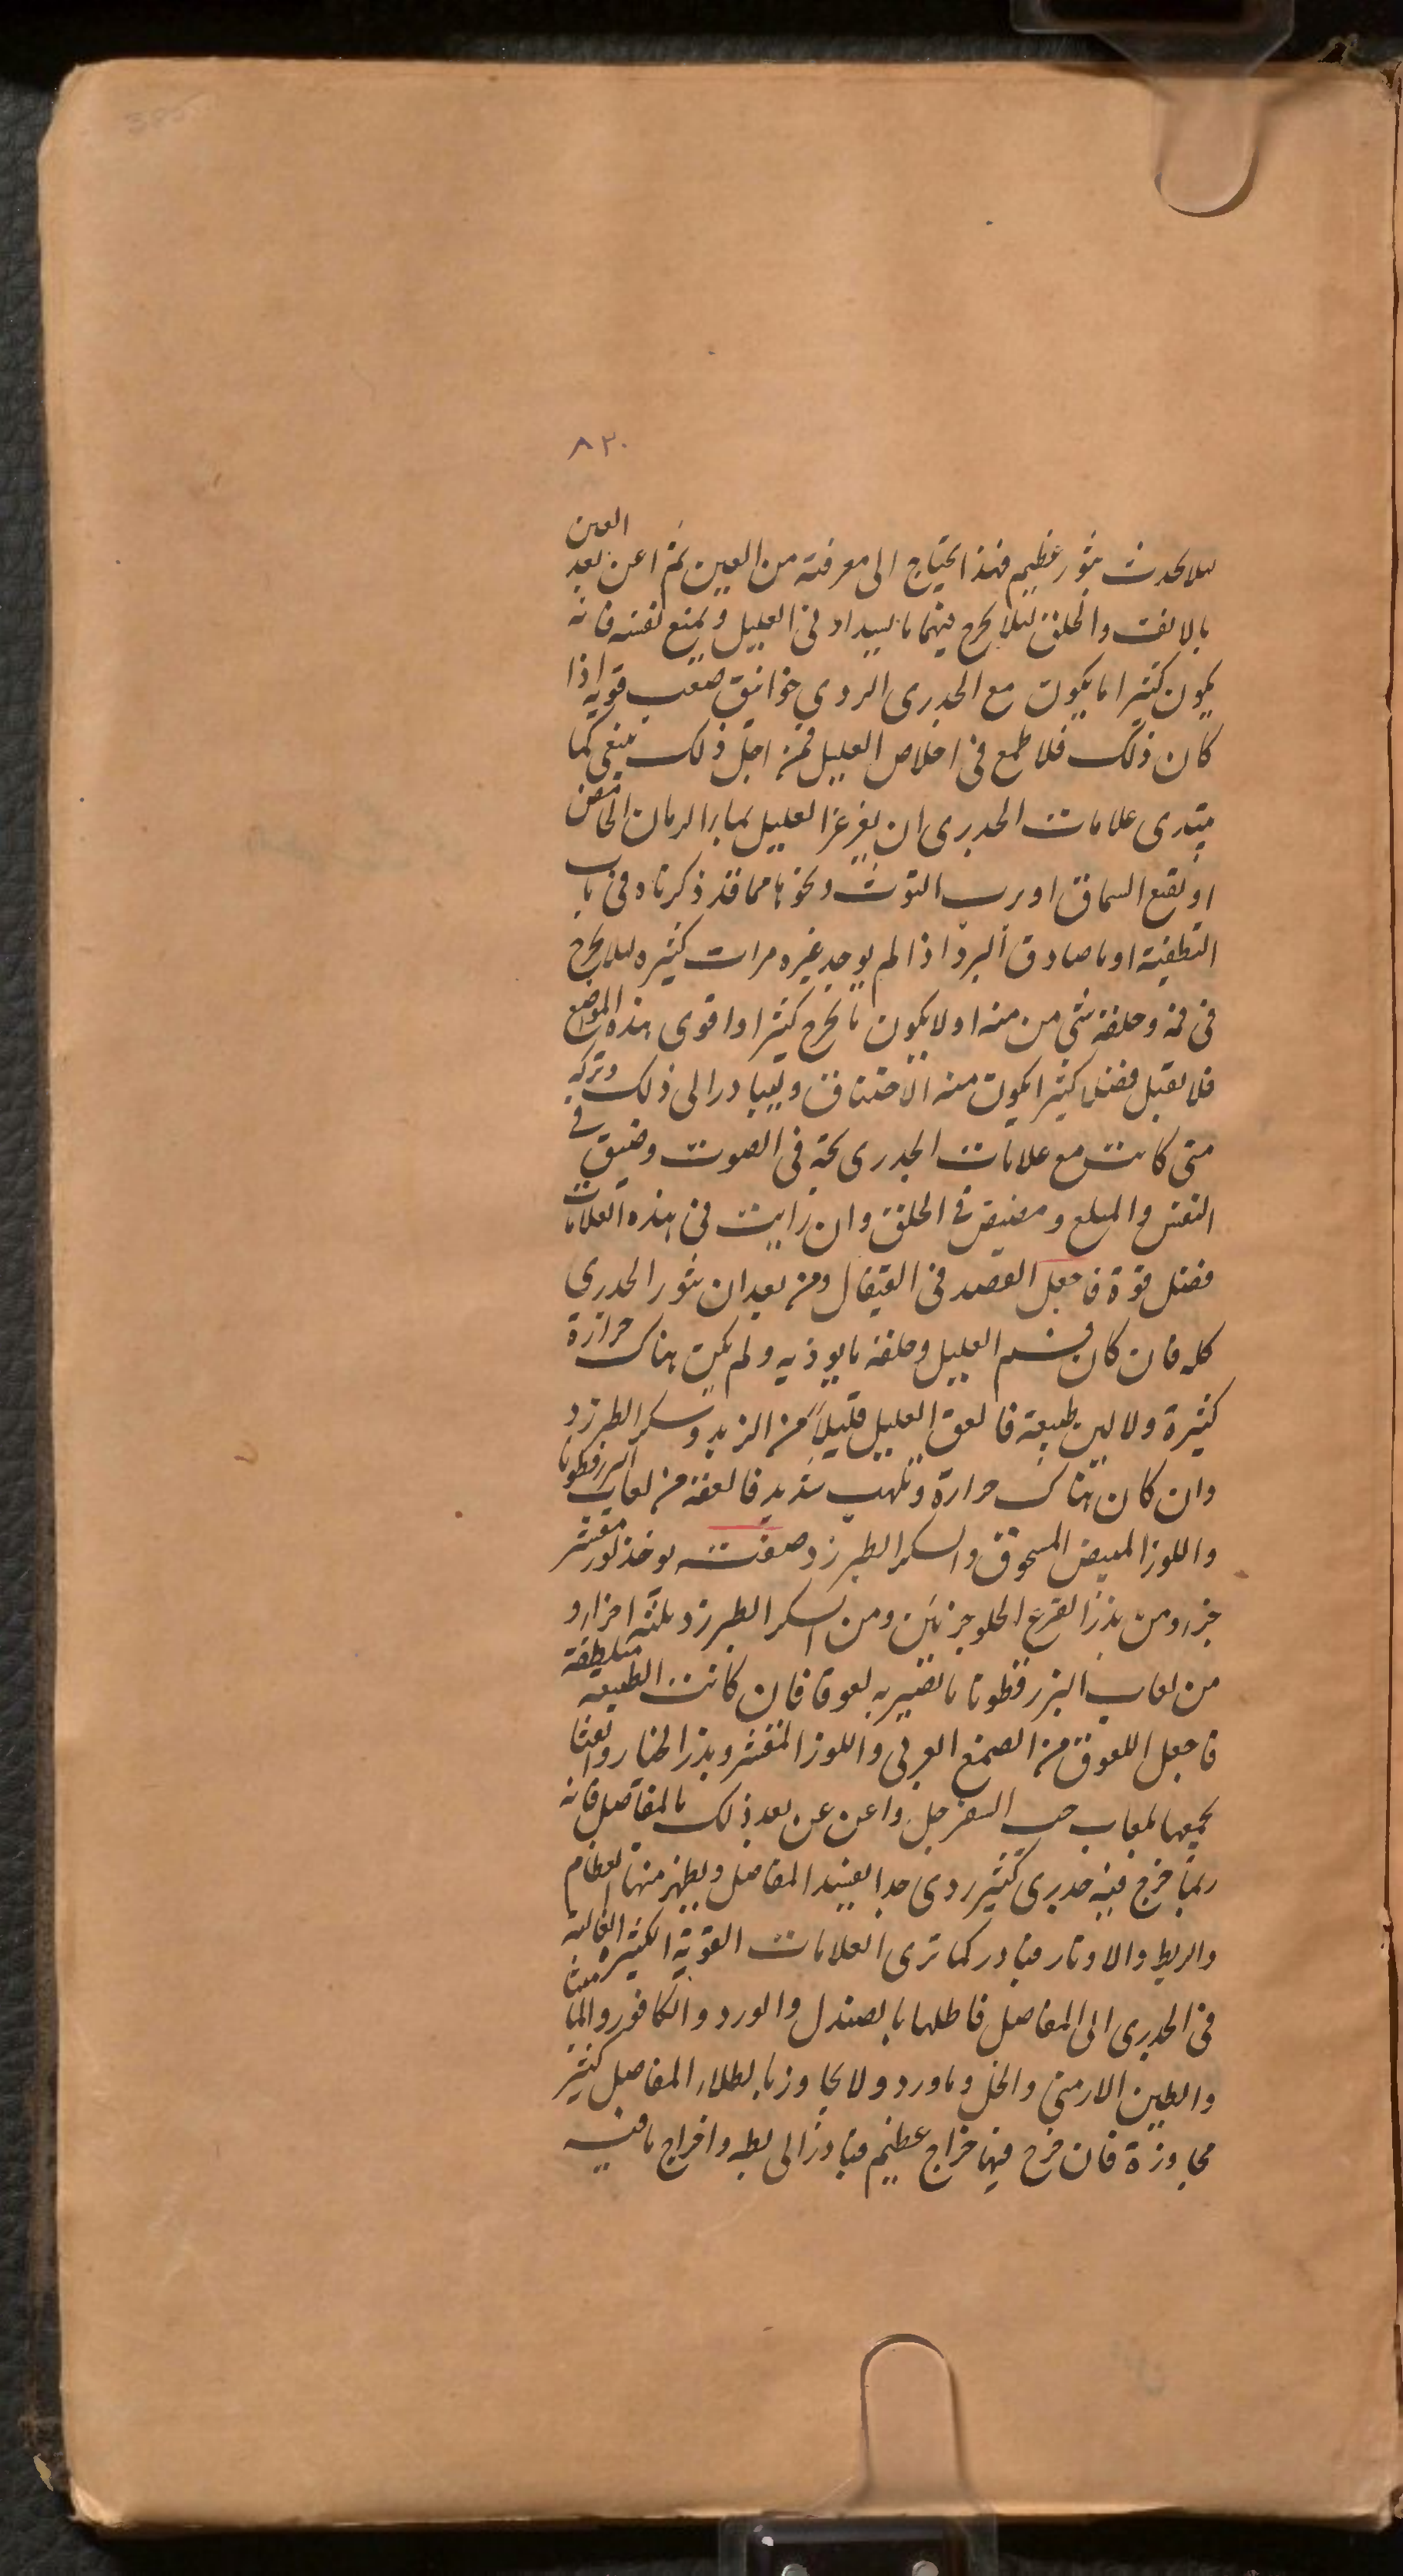 ٨٢٠
لىلا يحدث بثور عظيم فهذا يحتاج الى معرفته من العين ثم اعن بعد العين
بالانف والحلق ليلا يخرج فيهما ما يسد اذنى العليل ويمنع نفسه فانه
يكون كثيرا ما يكون مع الجدرى الردى خوانيق صعب قويه اذا
كان ذلك فلا طمع فى اخلاص العليل فمن اجل ذلك ينبغى كما
يبتدى علامات الجدرى ان يغرغر العليل بما الرمان الحامض
او نقيع السماق او برب التوث ونحوها مما قد ذكرناه فى باب
التطفية او ما صادق البرد اذا لم يوجد غيره مرات كثيره لىلا يخرج
فى فمه وحلقه شى من منه او لا يكون ما يخرج كثيرا واقوى هذه المواضع
فلا يقبل فضلا كثيرا يكون منه الاختناق وليبادر الى ذلك وتركه
متى كانت مع علامات الجدرى بحة فى الصوت وضيق فى
النفس والمبلع ومضيض فى الحلق وان رايت فى هذه العلامات
فضل قوة فاجعل الفصد فى القيفال ومن بعد ان بثور الجدرى
كله فان كان فى فم العليل وحلقه ما يوذيه ولم يكن هناك حرارة
كثيرة ولا لين طبيعة فالعق العليل قليلاً من الزبد وسكر الطبرزد
وان كان هناك حرارة وتلهب شديد فالعقه من لعاب البزرقطونا
واللوز المبيض المسحوق والسكر الطبرزد صفته يوخذ لوز مقشر
جزء ومن بزر القرع الحلو جزئين ومن السكر الطبرزد ثلثه اجزاء و
من لعاب البزرقطونا ما تصير به لعوقا فان كانت الطبيعه منطلقة
فاجعل اللعوق من الصمغ العربى واللوز المقشر وبزر الخيار والنشا
يجمعها لعاب حب السفرجل واعن عن بعد ذلك بالمفاصل فانه
ربما خرج فيه جدرى كثير ردى جدا يفسد المفاصل ويظهر منها العظام
والربط والاوتار فبادر كما ترى العلامات القوية الكثيره الغالبة
فى الجدرى الى المفاصل فاطلها بالصندل والورد والكافور والماميثا
والطين الارمنى والخل وماورد ولا يجاوز بالطلاء المفاصل كثير
مجاوزة فان خرج فيها خراج عظيم فبادر الى بطه واخراج ما فيه